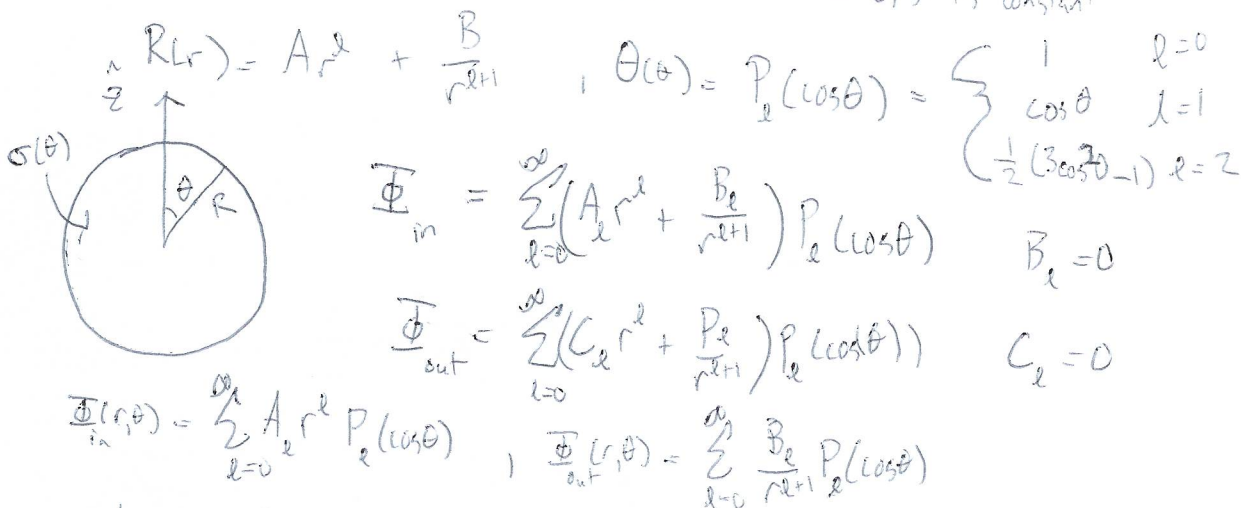 is constant
R(r) = A r^l + B / r^{l+1} , Θ(θ) = P_l (cosθ) = { 1 l=0
cosθ l=1
1/2 (3cos²θ-1) l=2
ẑ
σ(θ)
θ R
Φ_in = ∑_{l=0}^∞ (A_l r^l + B_l / r^{l+1}) P_l (cosθ) B_l = 0
Φ_out = ∑_{l=0}^∞ (C_l r^l + P_l / r^{l+1}) P_l (cosθ)) C_l = 0
Φ_in (r,θ) = ∑_{l=0}^∞ A_l r^l P_l (cosθ) , Φ_out (r,θ) = ∑_{l=0}^∞ B_l / r^{l+1} P_l (cosθ)